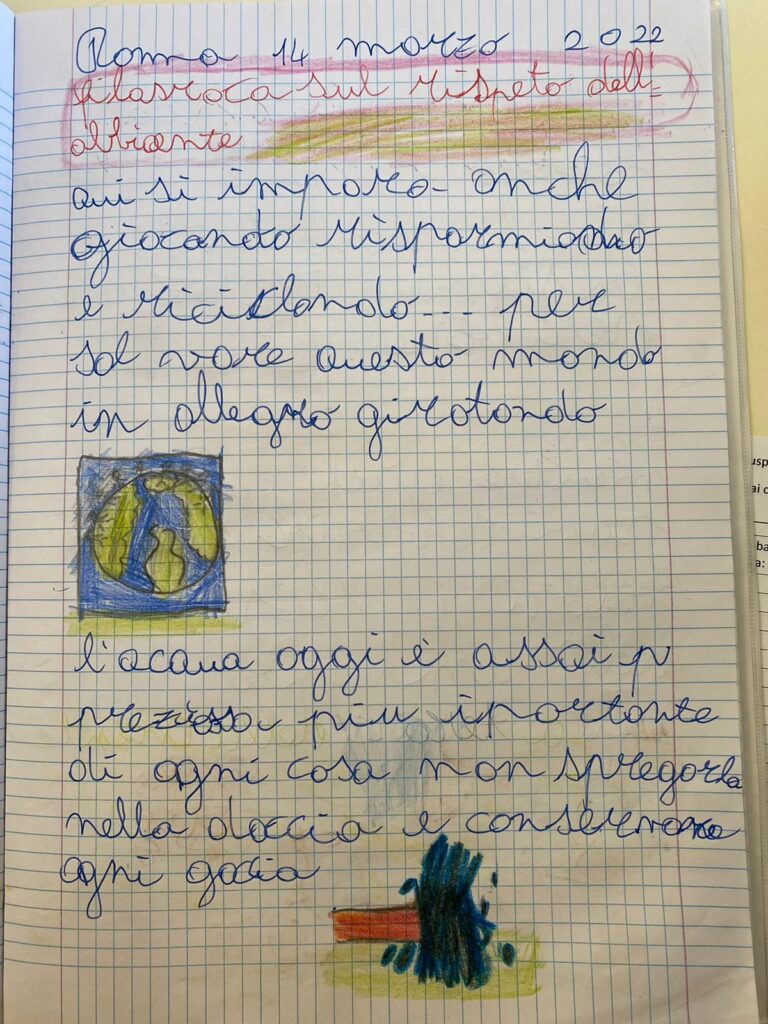 Roma 14 marzo 2022
filasroca sul rispeto dell'
abbiente
qui si imparo anche
giocando risparmiando
e riciclando... per
sal vare questo mondo
in allegro girotondo
l'acqua oggi è assai p
preziosa piu iportante
di ogni cosa non spregarla
nella doccia e conservare
ogni gocia
usp
ai c
ba
a: